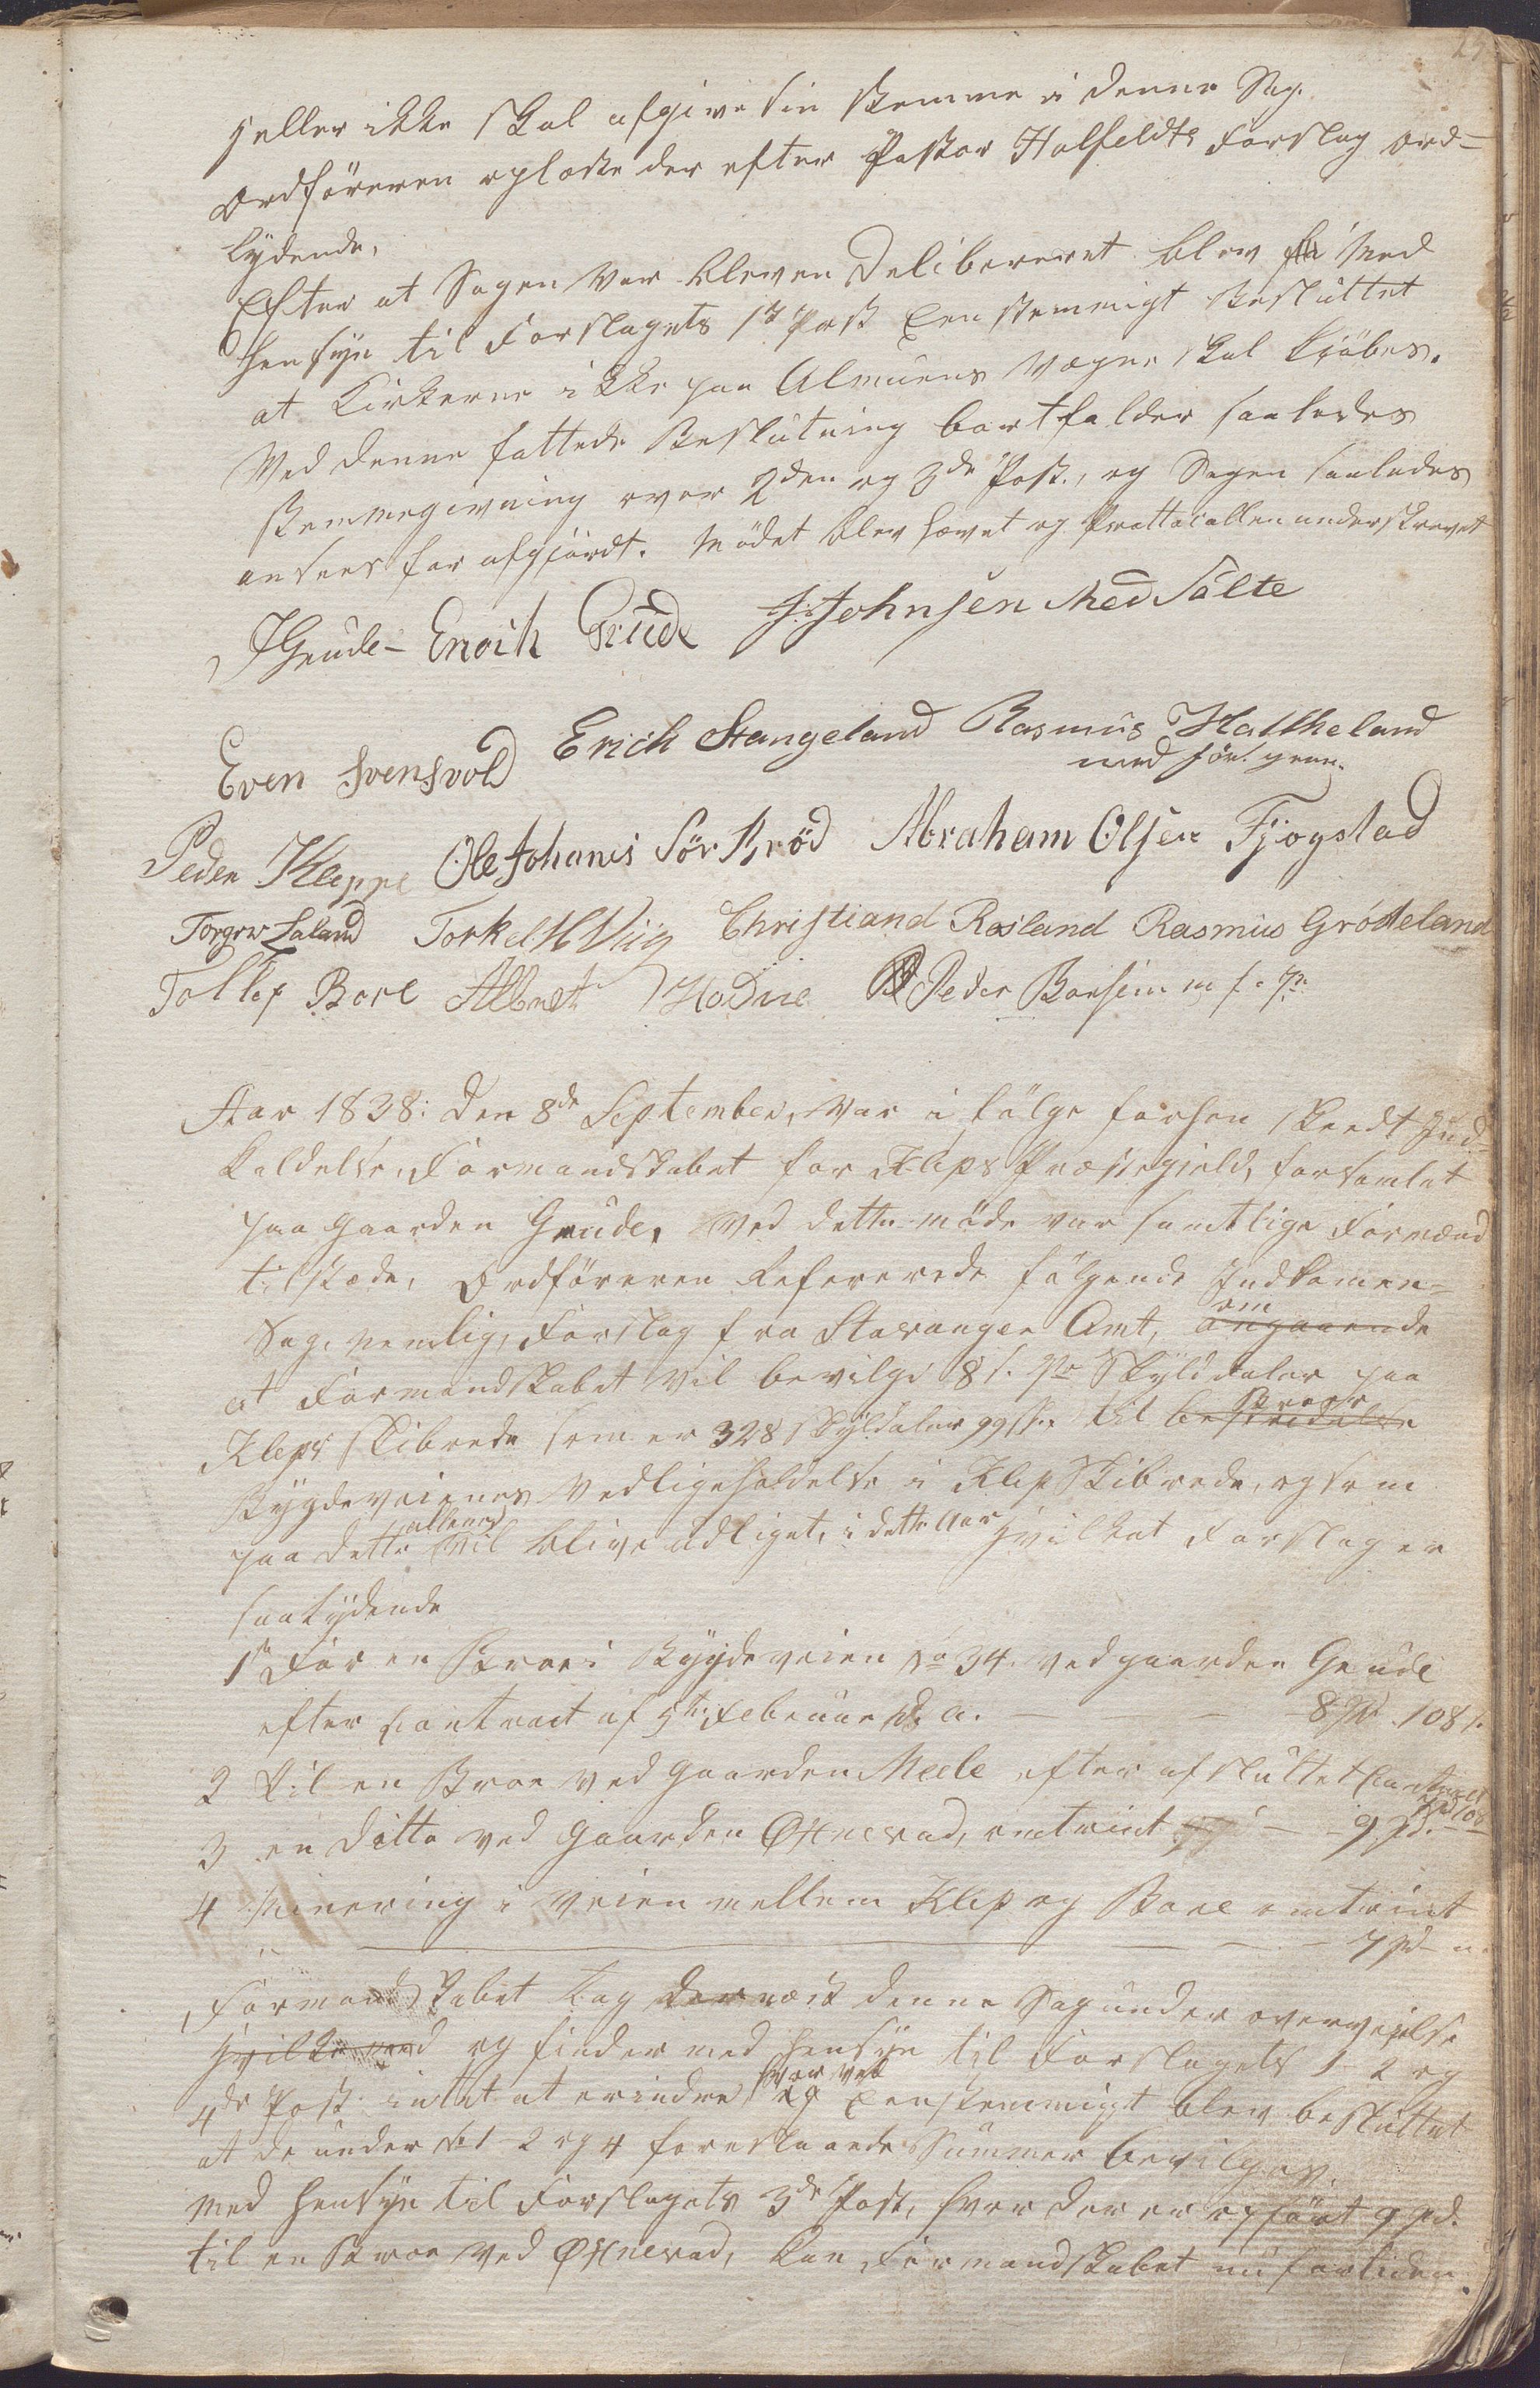 heller ikke skal afgive sin Stemme i denne Sag.
Ordföreren oplæste der efter Pastor Halfeldts Forslag ord-
lydende,
Efter at Sagen var bleven Delibereret blev Med
Hensyn til Forslagets 1ste Post Eenstemmigt Besluttet
at Kirkerne ikke paa Almuens Vegne skal kjöbes.
Ved denne fattede Beslutning bortfalder saaledes
Stemmegivning over 2den og 3de Post, og Sagen saaledes
ansees for afgjordt. Mödet blev hævet og Prottocollen underskrevet
Grude - Enoch Grude J. Johnsen Med Sälte
Even Svensvold Erich Stangeland Rasmus Hatlheland
med för. penn.
Peder Kleppe Ole Johanes Sör Bröd Abraham Olsen Fjogstad
Torger Laland Torkel H Viig Christiand Rosland Rasmus Grödeland
Tollef Bore Albret Hodne Peder Borsem m. f. Pn
Aar 1838: den 8de September, var i fölge forhen skeedt Ind-
kaldelse, Formandskabet for Kleps Præstegield, forsamlet
paa Gaarden Grude, Ved dette möde var samtlige Formænd
tilstæde, Ordföreren Refererede fölgende Indkomen-
Sag. nemlig, Forslag fra Stavanger Amt, angaaende om
at Formandskabet vil bevilge 8 s. pr Skylddaler paa
Kleps Skibrede som er 328 Skyldaler til Broers
Bygdeveienes Vedligeholdelse i Klep Skibrede, og som
paa dette allene vil blive udliget, i dette Aar hvilket Forslag er
saalydende
1st For en Broe i Bygdeveien No 34. ved gaarden Grude
efter Contract af 5te Februar d. a. - - 8 Spd 108 s.
2 til en Broe ved Gaarden Meele efter afsluttet Contract
3 en Ditto ved Gaarden Öxnevad, omtrint - 9 Spd. -
4 Minering i Veien mellem Klep og Bore omtrint
- - - 7 Spd - "
Formandskabet tog dernæst denne Sag under overveielse
og finder med Hensyn til Forslagets 1 2 og
4de Post intet at erindre hvorved og Eenstemmigt blev besluttet
at de under No 1 - 2 og 4 forestaaende Summer bevilges.
Med Hensyn til Forslagets 3de Post, hvor der er opfört 9 Spd.
til en Broe ved Öxnevad, kan Formandskabet nu for tiden